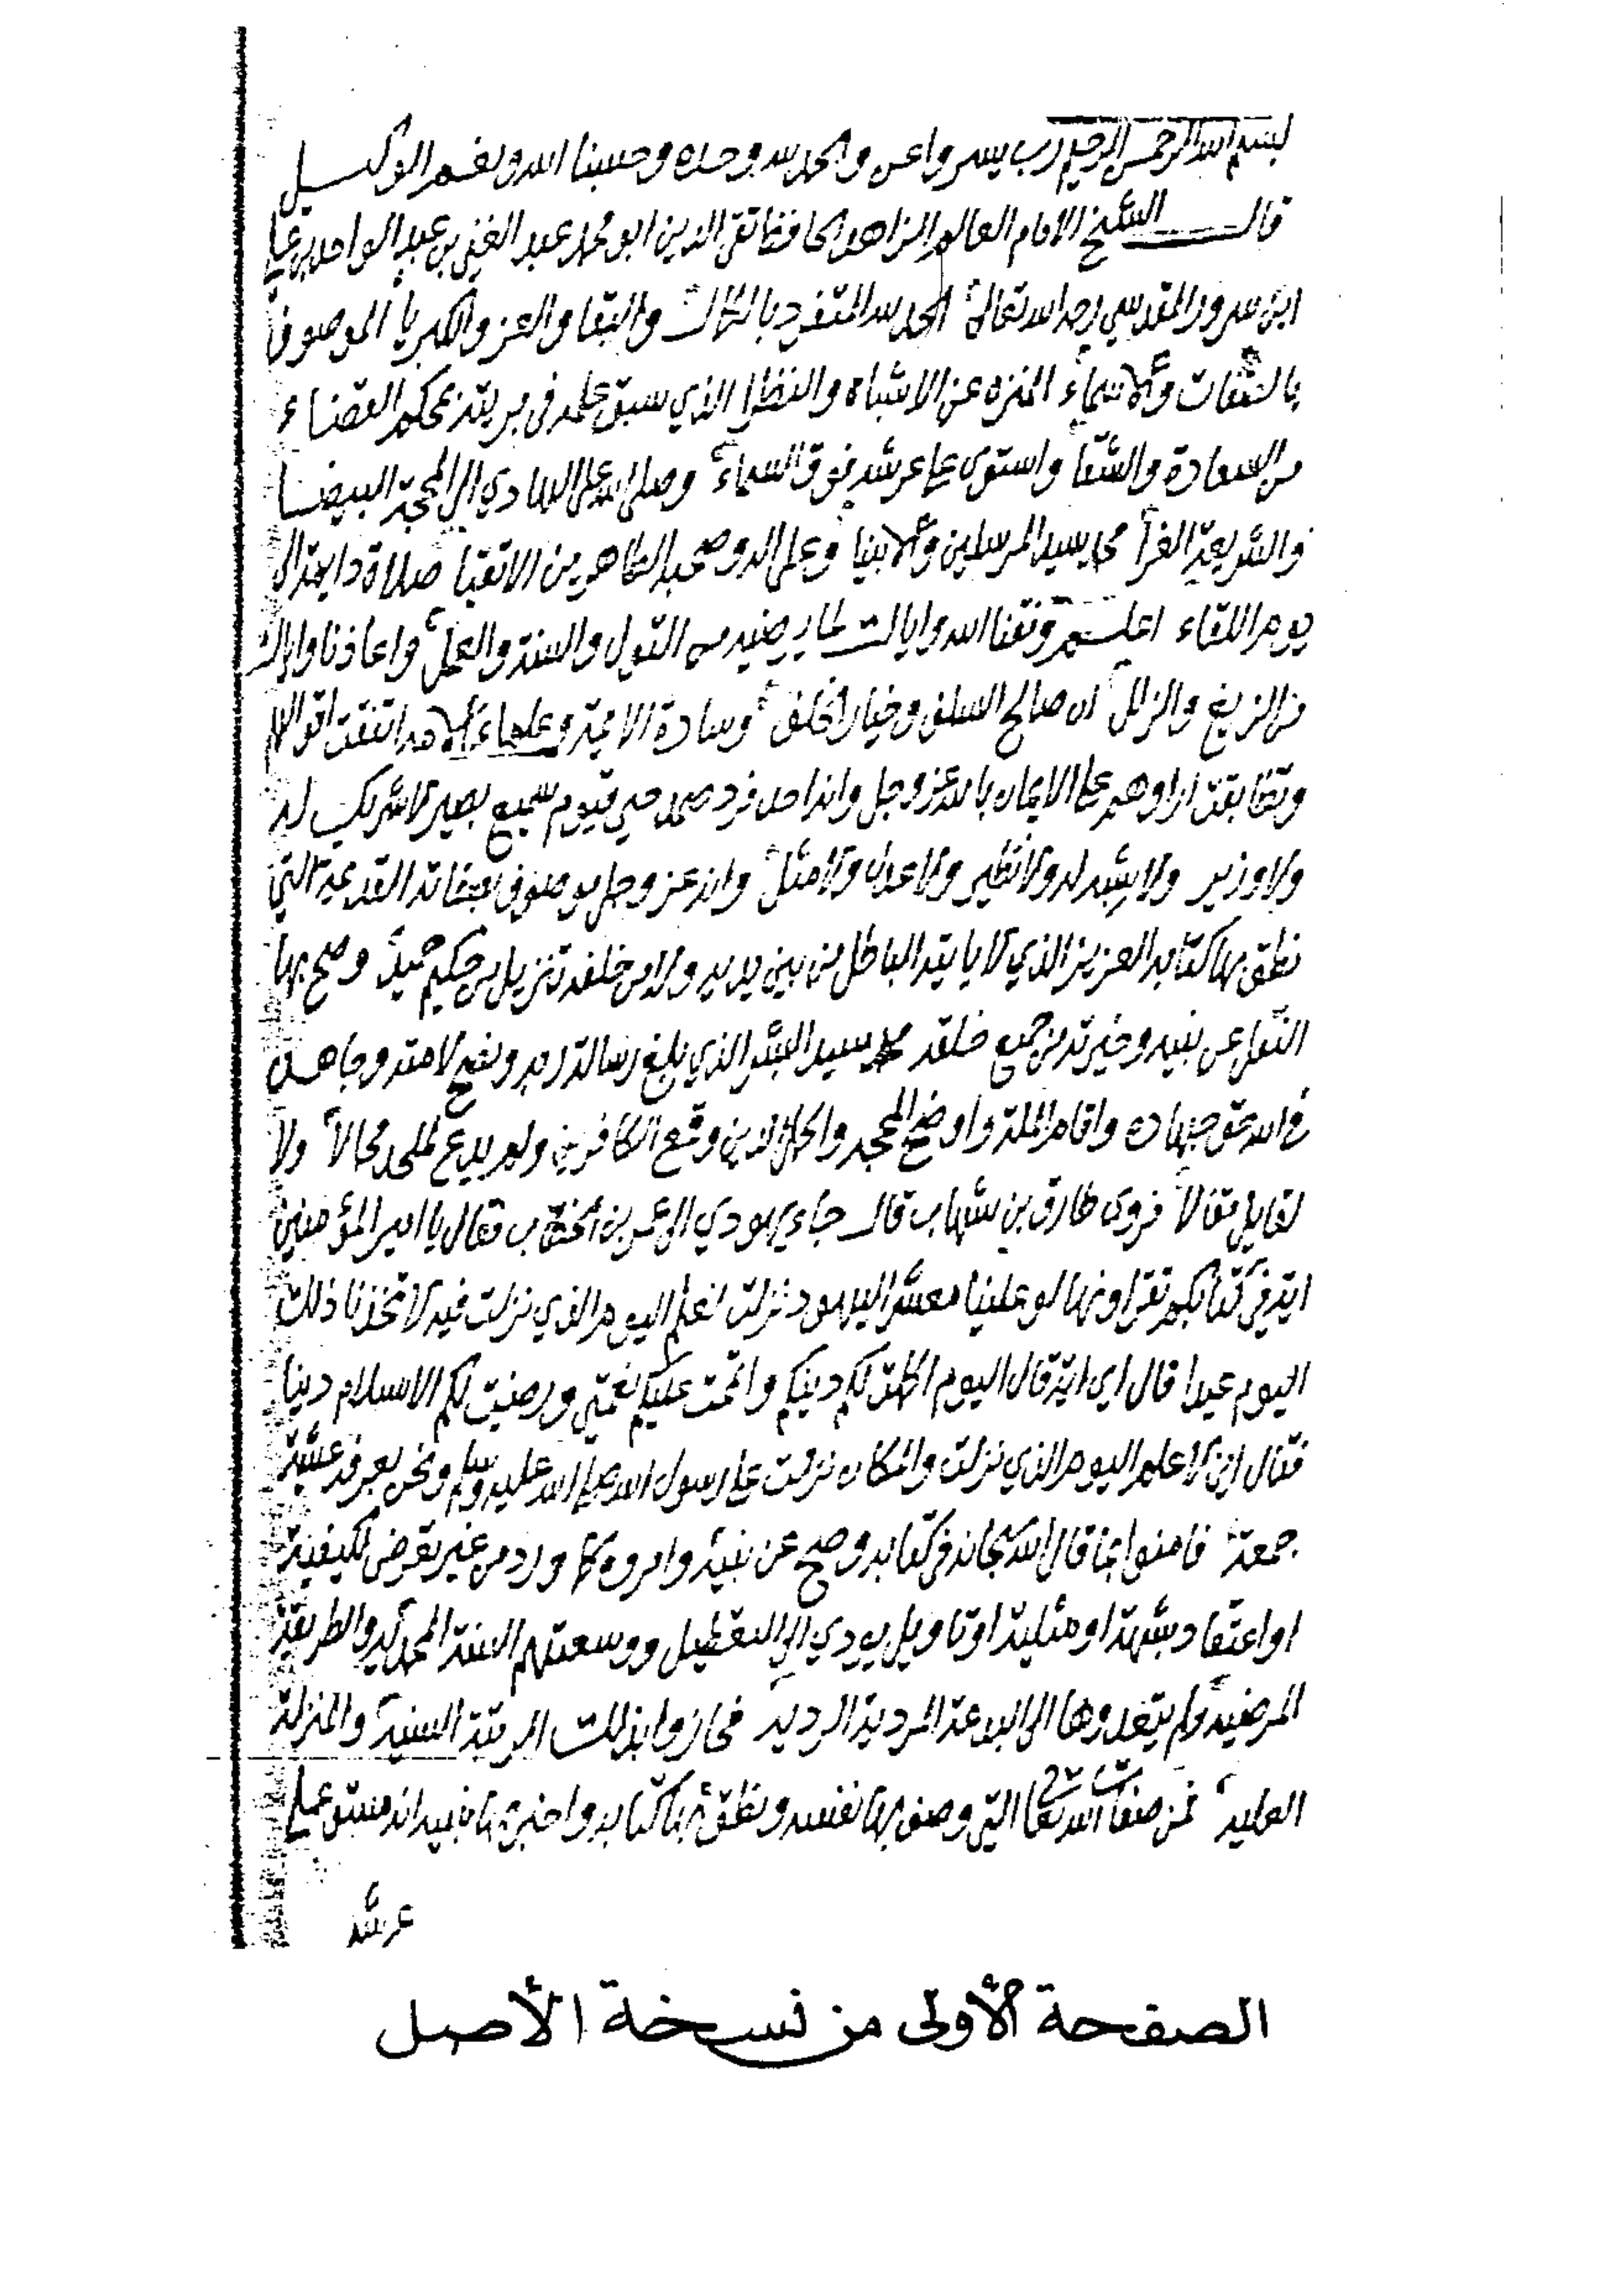 بسم الله الرحمن الرحيم رب يسر واعن والحمد لله وحده وحسبنا الله ونعم الوكيل
قال الشيخ الامام العالم الزاهد الحافظ تقي الدين ابو محمد عبد الغني بن عبد الواحد بن علي
ابن سرور المقدسي رحمه الله تعالى الحمد لله المتفرد بالكمال والبقا والعز والكبريا الموصوف
بالصفات والاسماء المنزه عن الاشباه والنظرا الذي سبق علمه في بريته بمحكم القضاء
من السعادة والشقا واستوى على عرشه فوق السماء وصلى الله على الهادي الى المحجة البيضا
والشريعة الغرا محمد سيد المرسلين والانبيا وعلى اله وصحبه الطاهرين الاتقيا صلاة دايمة الى
يوم اللقاء اعلم وفقنا الله واياك لما يرضيه من القول والسنة والعمل واعاذنا واياك
من الزيغ والزلل ان صالح السلف وخيار الخلف وسادة الايمة وعلماء الامة اتفقت اقوالهم
وتطابقت اراوهم على الايمان بالله عز وجل وانه احد فرد صمد حي قيوم سميع بصير لا شريك له
ولا وزير ولا شبيه له ولا نظير ولا عدل ولا مثل وانه عز وجل موصوف بصفاته القديمة التي
نطق بها كتابه العزيز الذي لا ياتيه الباطل من بين يديه ولا من خلفه تنزيل من حكيم حميد وصح بها
النقل عن نبيه وخيرته من جميع خلقه محمد سيد البشر الذي بلغ رسالة ربه ونصح لامته وجاهد
في الله حق جهاده واقام الملة واوضح المحجه واكمل الدين وقمع الكافرين ولم يدع لملحد مجالا ولا
لقايل مقالا فروى طارق بن شهاب قال جاء يهودي الى عمر بن الخطاب فقال يا امير المؤمنين
اية في كتابكم تقراونها لو علينا معشر اليهود نزلت نعلم اليوم الذي نزلت فيه لاتخذنا ذلك
اليوم عيدا قال اي اية قال اليوم اكملت لكم دينكم واتممت عليكم نعمتي ورضيت لكم الاسلام دينا
فقال اني لاعلم اليوم الذي نزلت والمكان نزلت على رسول الله صلى الله عليه وسلم ونحن بعرفه عشية
جمعة فامنوا بما قال الله سبحانه في كتابه وصح عن نبيه وامروه كما ورد من غير تعرض لكيفية
او اعتقاد شبهة او مثلية او تاويل يودي الى التعطيل ووسعتهم السنة المحمدية والطريقة
المرضيه ولم يتعدوها الى البدعة المردية الرديه فحازوا بذلك الرتبة السنية والمنزلة
العليه فمن صفات الله تعالى التي وصف بها نفسه ونطق بها كتابه واخبر بها نبيه انه مستو على
عرشه
الصفحة الأولى من نسخة الأصل